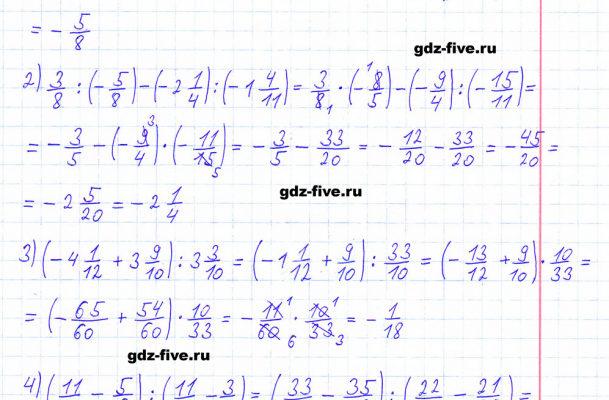 = - 5/8
gdz-five.ru
2) 3/8 : (- 5/8) - (-2 1/4) : (-1 4/11) = 3/8 1 · (- 1 8/5) - (- 9/4) : (- 15/11) =
= - 3/5 - (- 9 3/4) · (- 11/15 5) = - 3/5 - 33/20 = - 12/20 - 33/20 = - 45/20 =
gdz-five.ru
= -2 5/20 = -2 1/4
3) (-4 1/12 + 3 9/10) : 3 3/10 = (-1 1/12 + 9/10) : 33/10 = (- 13/12 + 9/10) · 10/33 =
= (- 65/60 + 54/60) · 10/33 = - 11 1/60 6 · 10 1/33 3 = - 1/18
gdz-five.ru
4) (11 - 5 : (11 - 3) = (33 - 35) : (22 - 21) =